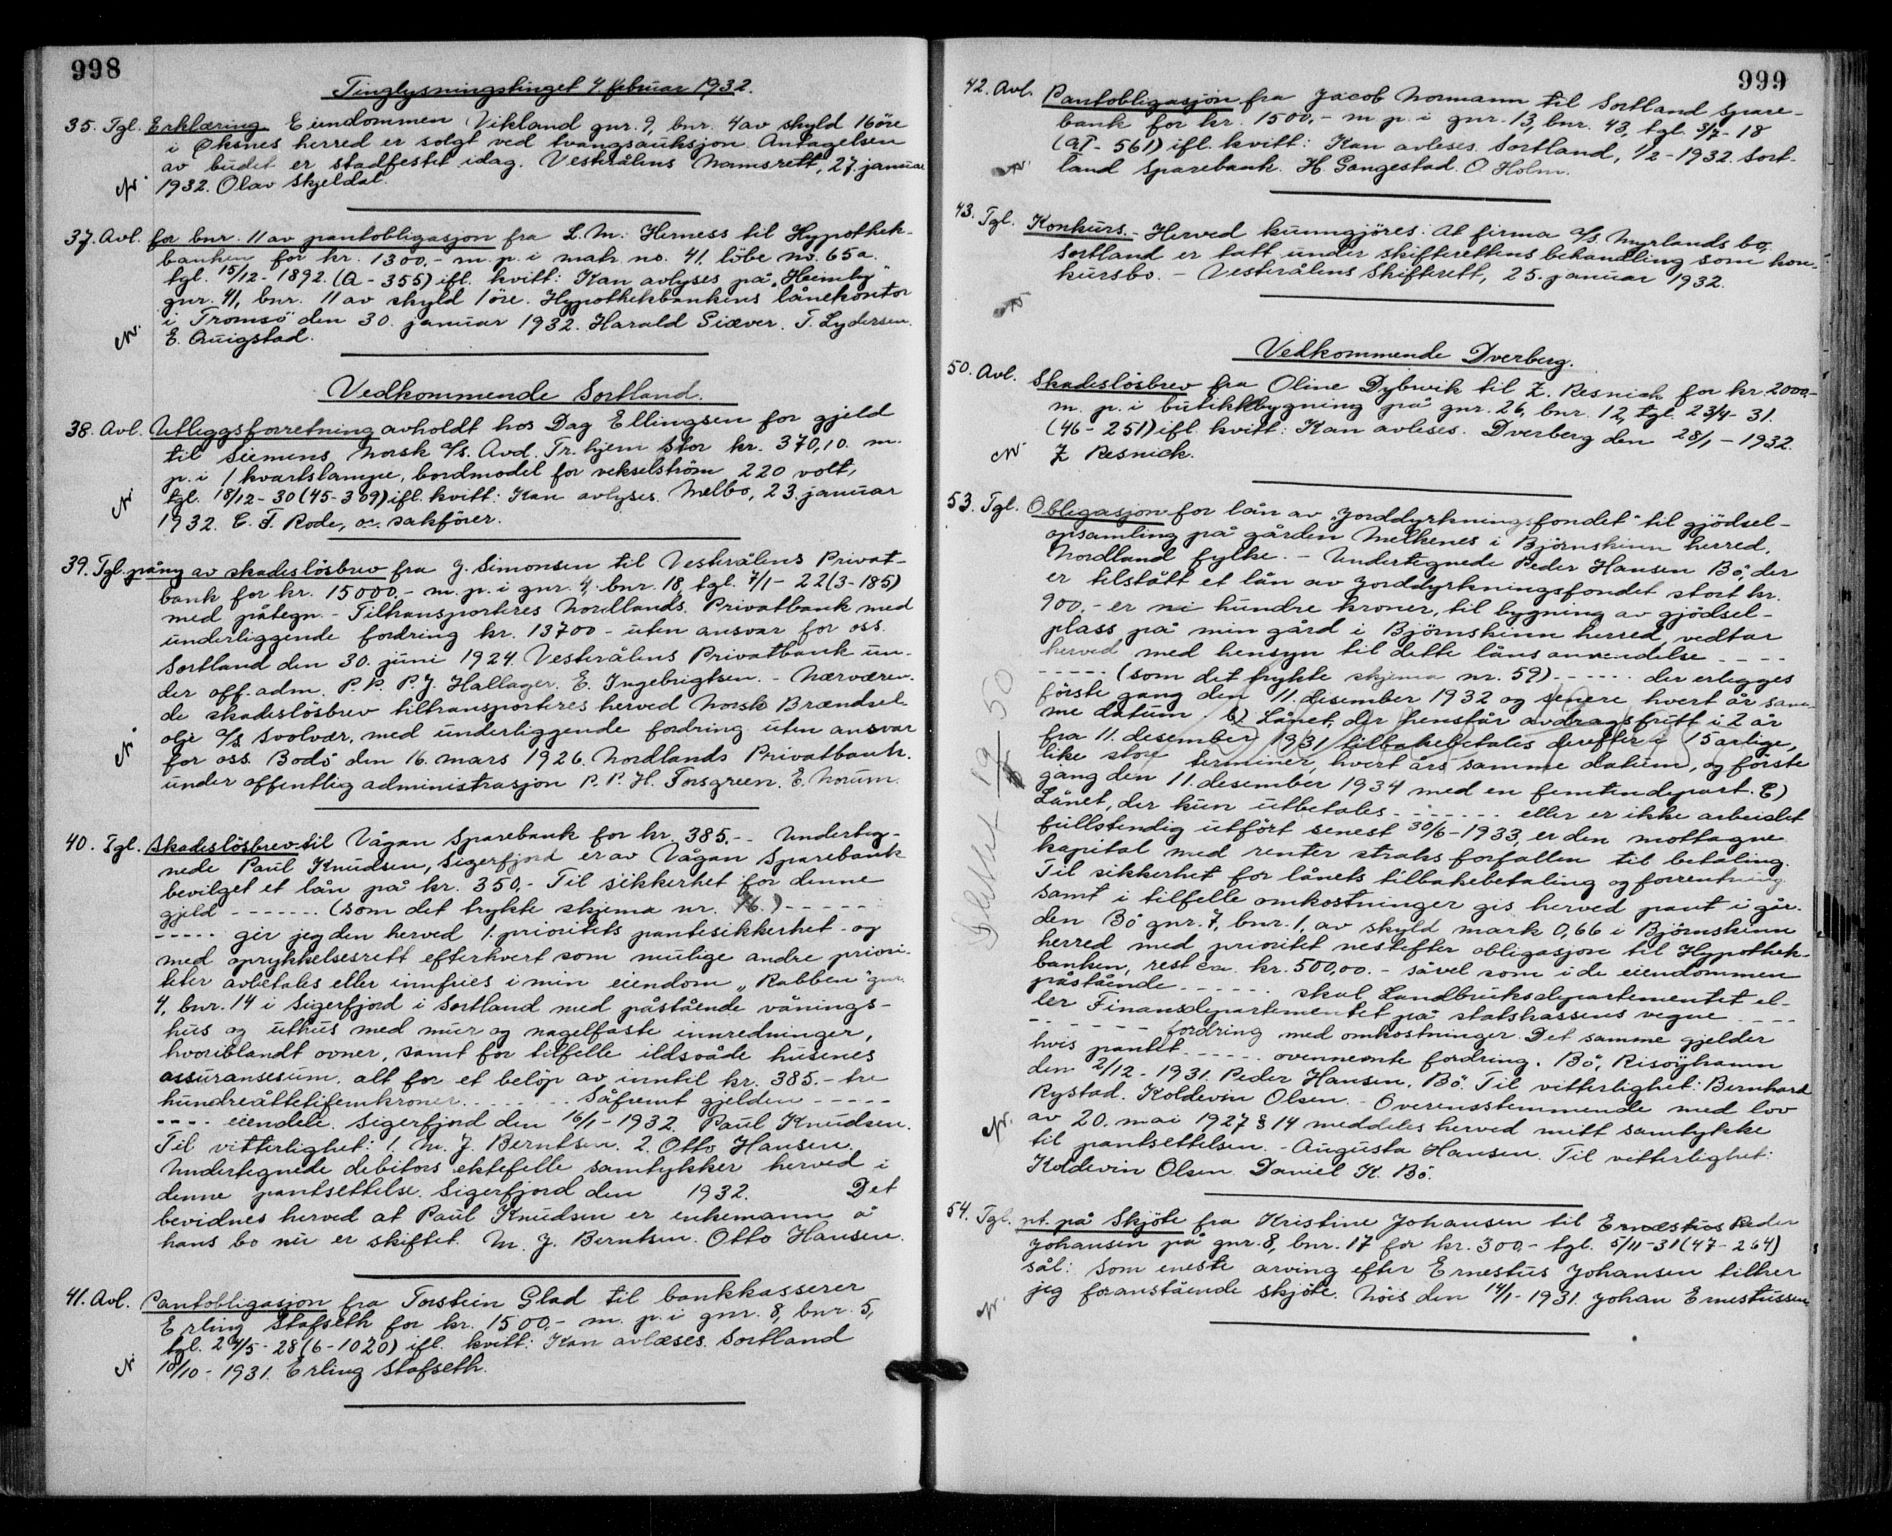 998
Tinglysningstinget 4 februar 1932.
35. Tgl. Erklæring. Eiendommen Vikland gnr. 9, bnr. 4 av skyld 16 øre
i Øksnes herred er solgt ved tvangsauksjon. Antagelsen
av budet er stadfestet idag. Vesterålens Namsrett, 27. januar
1932. Olav Skjeldal.
37. Avl. for bnr. 11 av pantobligasjon fra L. M. Herness til Hypothek-
banken for kr. 1300,- m. p. i matr. no. 41. löbe no. 65a.
tgl. 15/12-1892. (A-355) ifl. kvitt: Kan avlyses på „Heimby"
gnr. 41, bnr. 11 av skyld 1 öre. Hypothekbankens lånekontor
i Tromsö den 30. januar 1932. Harald Siæver. T. Lydersen.
E. Quigstad.
Vedkommende Sortland.
38. Avl. Utleggsforretning avholdt hos Dag Ellingsen for gjeld
til Siemens Norsk A/S. Avd. Tr.hjem stor kr. 370,10. m.
p. i 1 kvartslampe, bordmodel for vekselström 220 volt,
tgl. 18/12-30 (45-309) ifl. kvitt: Kan avlyses. Melbo, 23. januar
1932. E. F. Rode, o.r. sakförer.
39. Tgl. påny av skadeslösbrev fra J. Simonsen til Vesterålens Privat-
bank for kr. 15000,- m. p. i gnr. 4, bnr. 18, tgl. 7/1-22 (3-185)
med påtegn. - Tiltransporteres Nordlands Privatbank med
underliggende fordring kr. 13700 - uten ansvar for oss.
Sortland den 30. juni 1924. Vesterålens Privatbank un-
der off. adm. P. P. P. J. Hallager. E. Ingebrigtsen. - Nærværen-
de skadeslösbrev tiltransporteres herved Norsk Brændsel-
olje A/S Svolvær, med underliggende fordring uten ansvar
for oss. Bodö den 16. mars 1926. Nordlands Privatbank.
under offentlig administrasjon P. P. H. Torsgreen. E. Norum.
40. Tgl. Skadeslösbrev til Vågan Sparebank for kr. 385.- Underteg-
nede Paul Knudsen, Sigerfjord er av Vågan Sparebank
bevilget et lån på kr. 350,- Til sikkerhet for denne
gjeld ------- (som det trykte skjema nr. 76.) -----
----- gir jeg den herved 1. prioritets pantesikkerhet - og
med oprykkelsesrett efterhvert som mulige andre priori-
teter avbetales eller innfries i min eiendom „Rabben" gnr.
4, bnr. 14 i Sigerfjord i Sortland med påstående vånings-
hus og uthus med mur og nagelfaste innredninger,
hvoriblandt ovner, samt for tilfelle ildsvåde husenes
assuransesum. alt for et beløp av inntil kr. 385.- tre
hundreåttetifemkroner ------- Såfremt gjelden -----
---- eiendele. Sigerfjord den 16/1-1932. Paul Knudsen.
Til vitterlighet: 1. M. J. Berntsen. 2. Otto Hansen.
Undertegnede debitors ektefelle samtykker herved i
denne pantsettelse. Sigerfjord den 1932. Det
bevidnes herved at Paul Knudsen er enkemann å
hans bo nu er skiftet. M. J. Berntsen. Otto Hansen.
41. Avl. Pantobligasjon fra Torstein Glad til bankkasserer
Erling Stafseth for kr. 1500,- m. p. i gnr. 8, bnr. 5,
tgl. 24/5-28 (6-1020) ifl. kvitt: Kan avlæses. Sortland
10/10-1931. Erling Stafseth.
999
42. Avl. Pantobligasjon fra Jacob Normann til Sortland Spare-
bank for kr. 1500,- m p. i gnr. 13, bnr. 43, tgl. 3/7-18
(AP-561) ifl. kvitt: Kan avleses. Sortland, 1/2-1932. Sort-
land Sparebank. H. Gangestad. O. Holm.
43. Tgl. Konkurs. - Herved kunngjöres: At firma A/S Myrlands bo,
Sortland er tatt under skifterettens behandling som kon-
kursbo. - Vesterålens Skifterett, 25. januar 1932.
Vedkommende Dverberg.
50. Avl. Skadeslösbrev fra Oline Dybwik til Z. Resnick for kr. 2000,-
m. p. i butikkbygning på gnr. 26, bnr. 12, tgl. 23/4-31.
(46-251) ifl. kvitt: Kan avleses. Dverberg den 28/1-1932.
Z Resnick.
53. Tgl. Obligasjon for lån av „Jorddyrkningsfondet" til gjödsel-
opsamling på gården Melkenes i Björnskinn herred,
Nordland fylke. - Undertegnede Peder Hansen Bö, der
er tilstått et lån av Jorddyrkningsfondet stort kr.
900,- er ni hundre kroner, til bygning av gjödsel-
plass på min gård i Björnskinn herred, vedtar
herved med hensyn til dette låns anvendelse - - - -
----- (som det trykte skjema nr. 59) ----- der erlegges
förste gang den 11. desember 1932 og senere hvert år sam-
me datum b) Lånet, der henstår avdragsfritt i 2 år
fra 11. desember 1931 tilbakebetales derefter i 15 årlige,
like store terminer, hvert års samme datum, og förste
gang den 11. desember 1934 med en femtendepart. C)
Lånet, der kun utbetales ------- eller er ikke arbeidet
fullstendig utfört senest 30/6-1933, er den mottagne
kapital med renter straks forfallen til betaling.
Til sikkerhet for lånets tilbakebetaling og forrentning
samt i tilfelle omkostninger gis herved pant i går-
den Bö gnr. 7, bnr. 1, av skyld mark 0,66 i Björnskinn
herred med prioritet nestefter obligasjon til Hypothek-
banken, rest ca. kr. 500,00. - såvel som i de eiendommen
påstående ------ skal Landbruksdepartementet el-
ler Finansdepartementet på statskassens vegne - - - -
------ fordring med omkostninger. Det samme gjelder
hvis pantet ----- ovennevnte fordring. Bö, Risöyhamn
den 2/12-1931. Peder Hansen, Bö. Til vitterlighet: Bernhard
Rystad. Koldevin Olsen. - Overensstemmende med lov
av 20. mai 1927 § 14 meddeles herved mitt samtykke
til pantsettelsen. - Augusta Hansen. Til vitterlighet:
Koldevin Olsen. Daniel K. Bö.
Slettet 19 50
54. Tgl. pt. på Skjöte fra Kristine Johansen til Ernæstus Peder
Johansen på gnr. 8, bnr. 17 for kr. 300,- tgl. 5/11-31 (47-264)
sål: Som eneste arving efter Ernestus Johansen tiltrer
jeg foranstående skjöte. Nöis den 14/1-1931. Johan Ernestussen